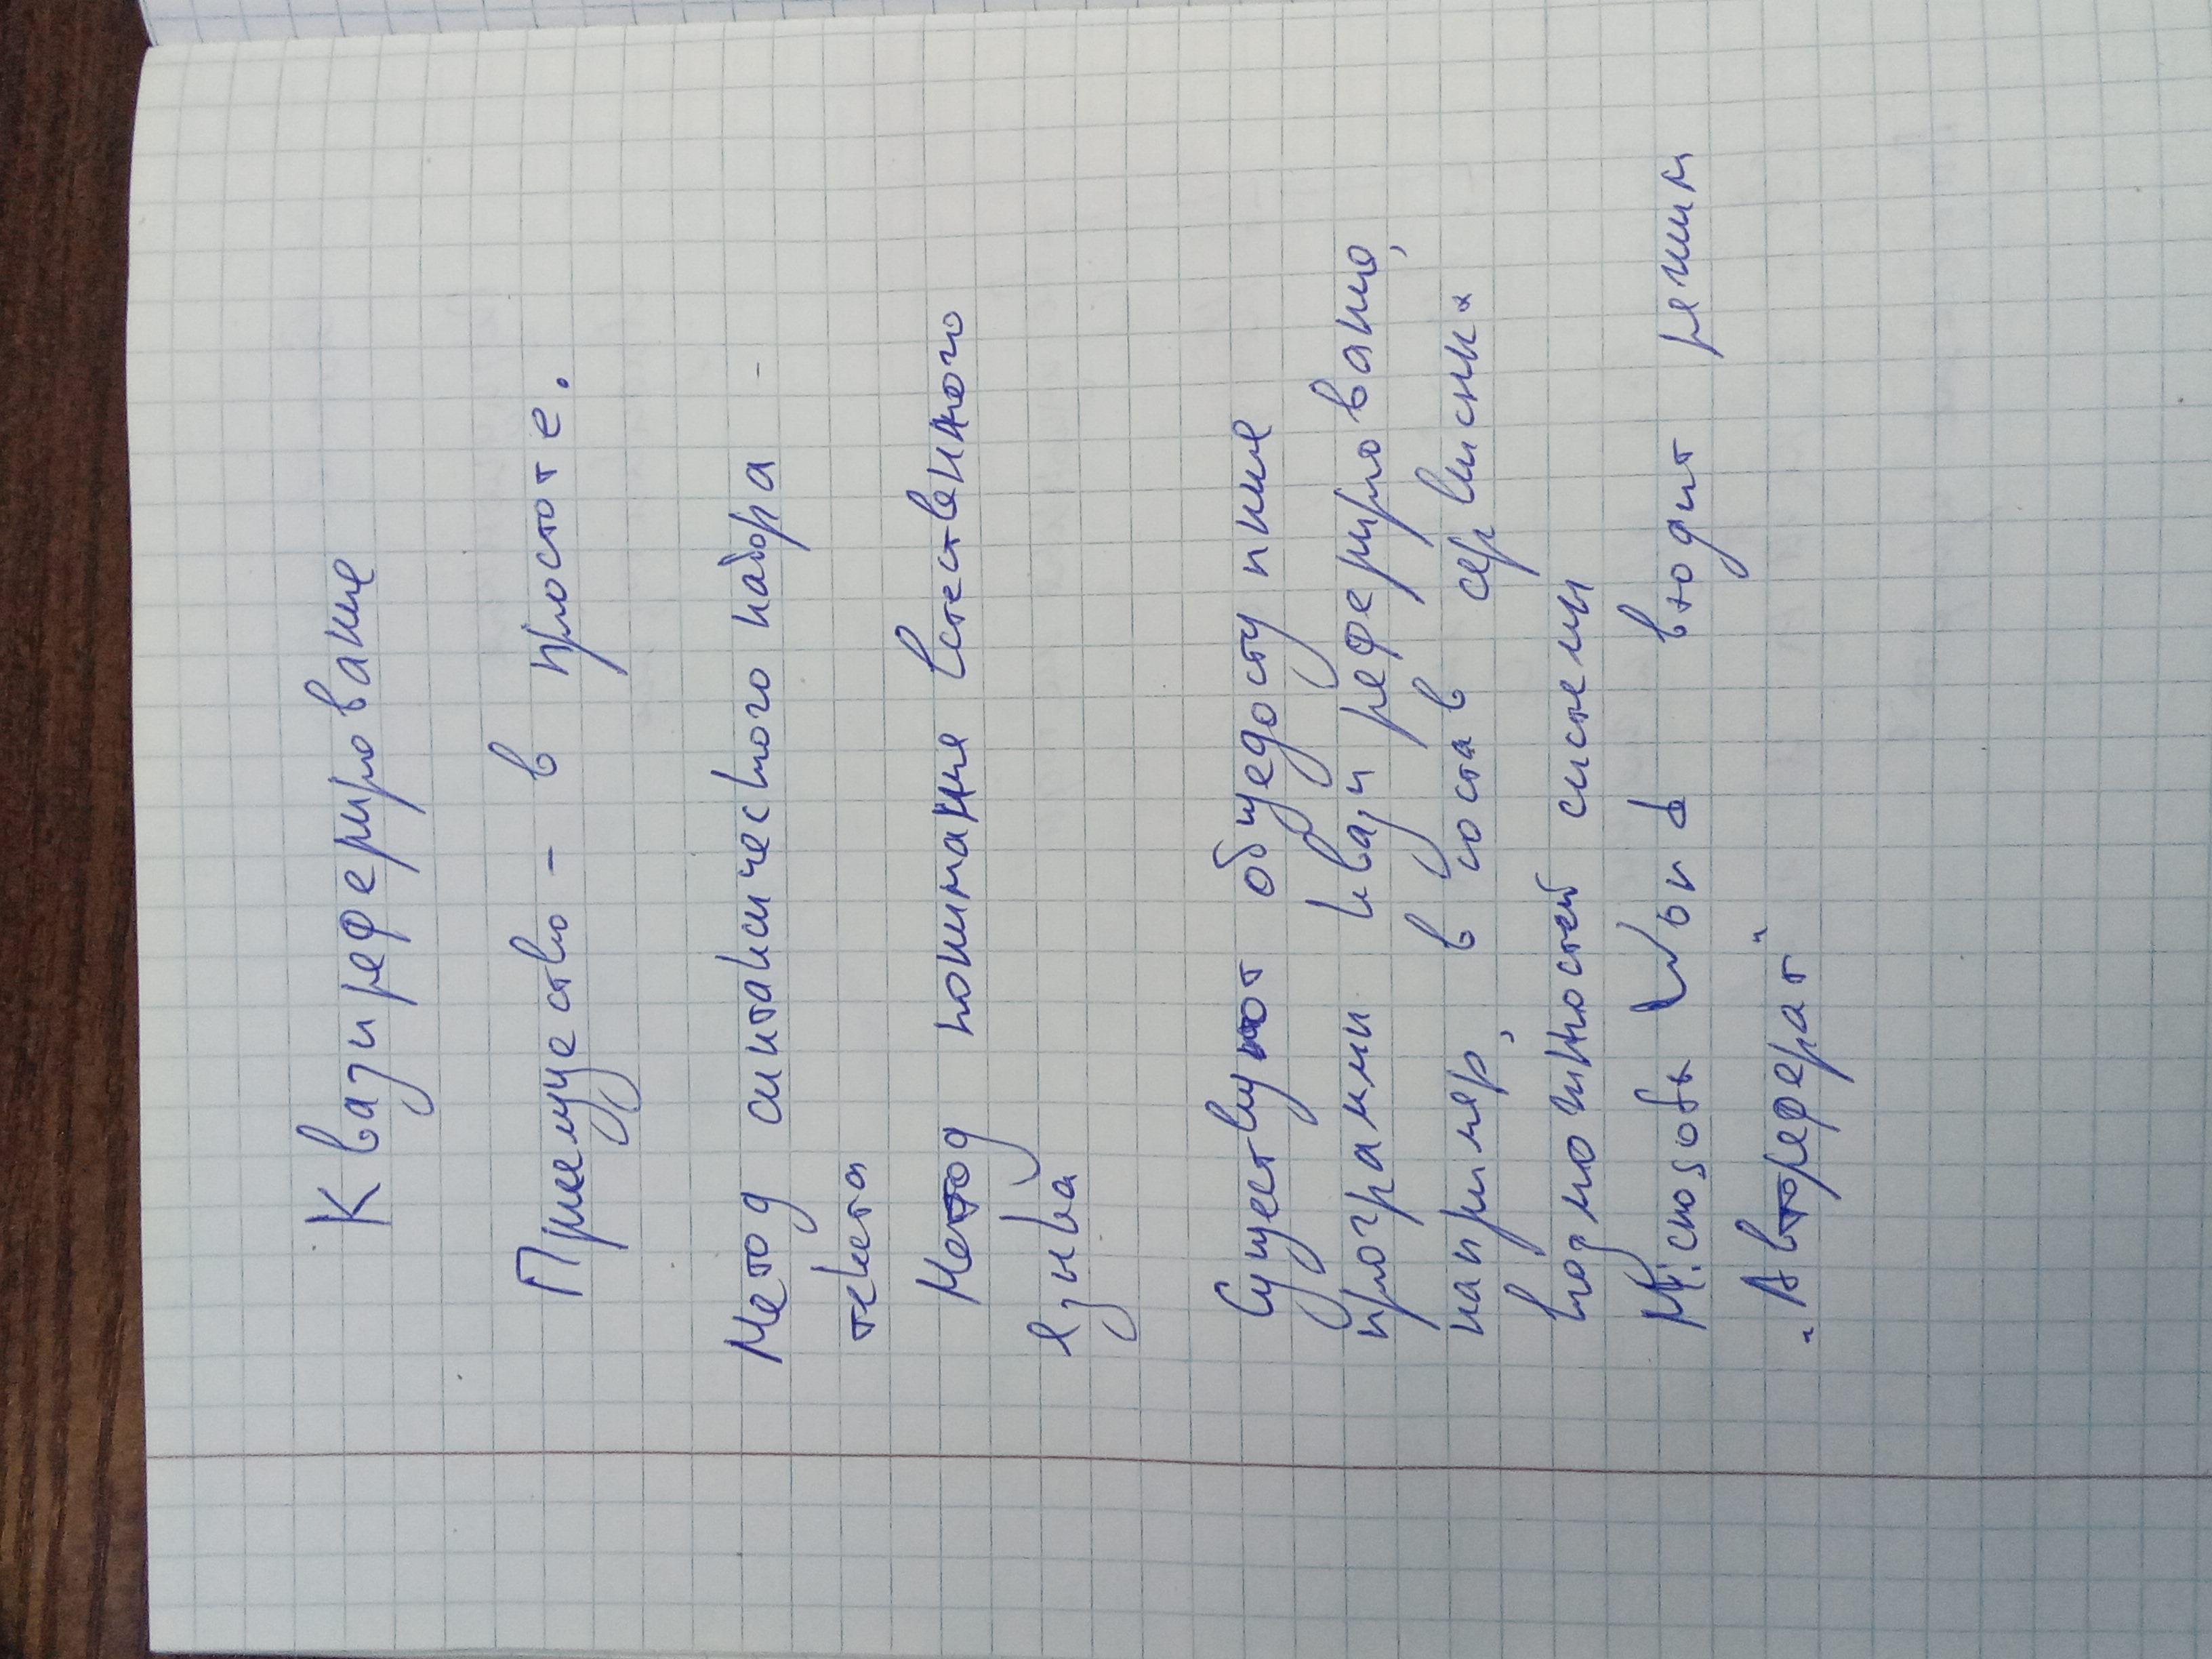 Квазиреферирование
Приемущество - в простоте.
Метод синтаксического набора -
текста
Метод понимания естественного
языка
Существуют общедоступные
программы квазиреферирования,
например, в состав сервисных
возможностей системы
Microsoft Word входит режим
"Автореферат"